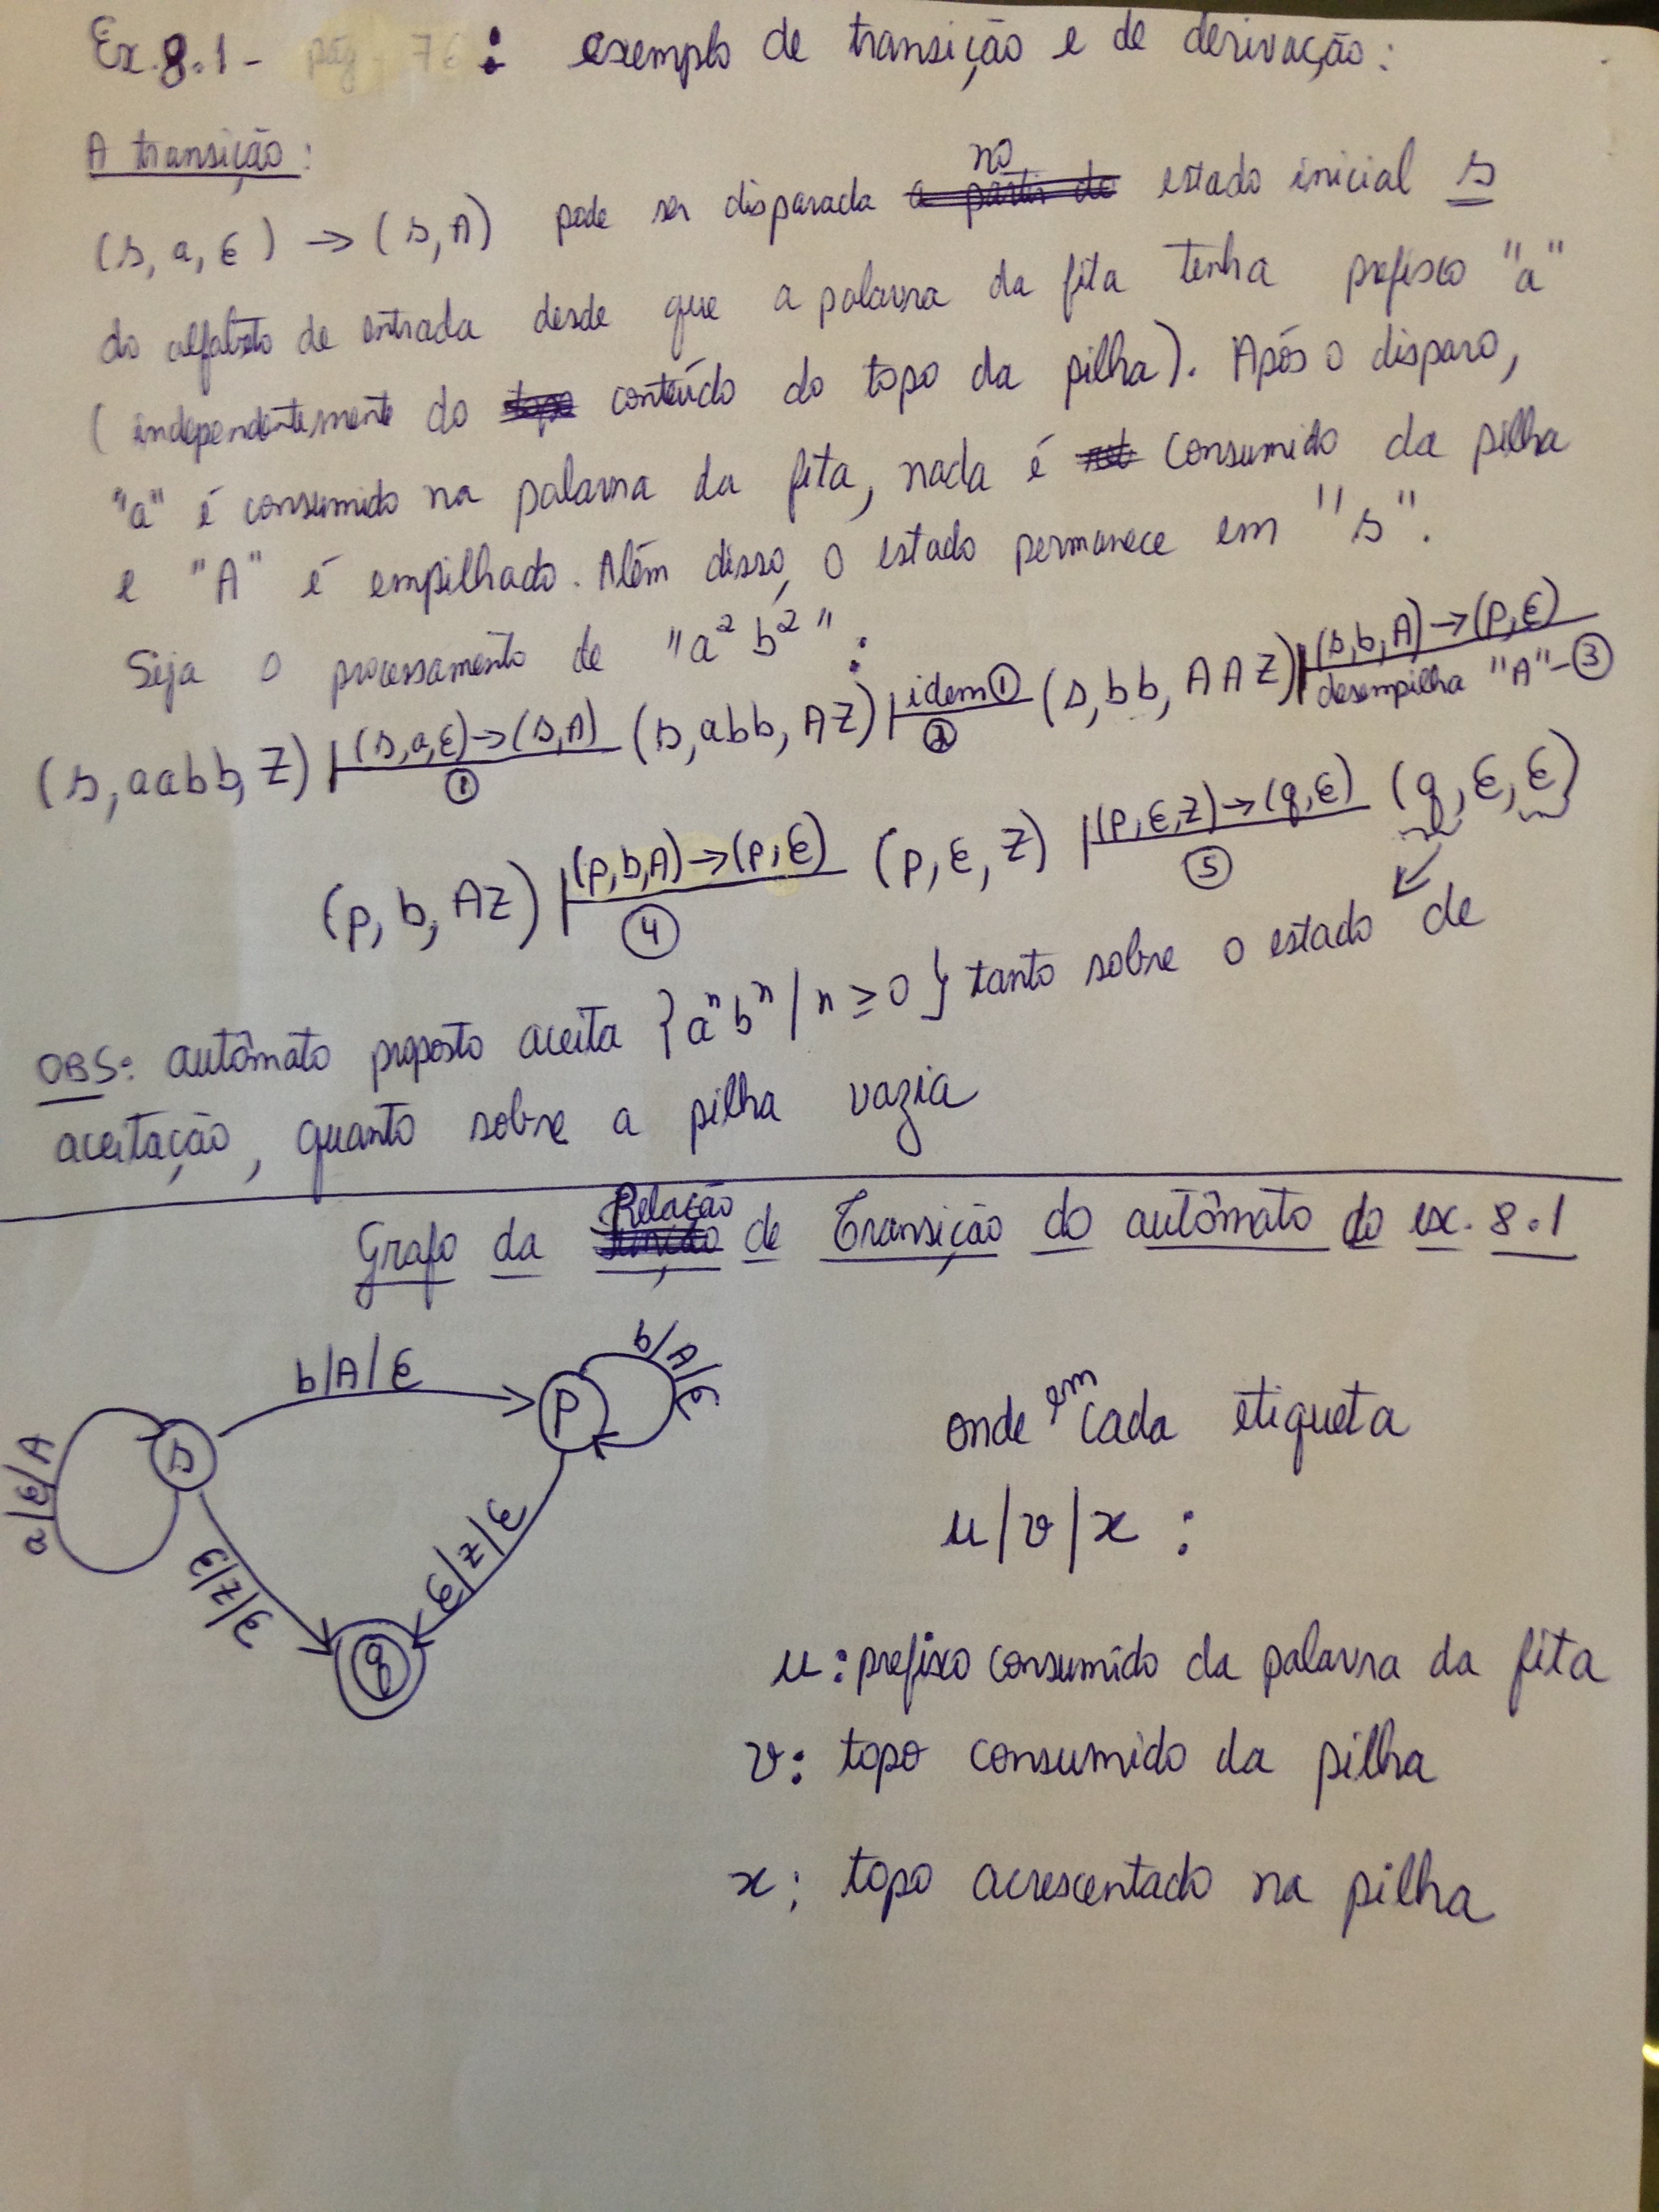 Ex. 8.1 - pág. 76 : exemplo de transição e de derivação:
A transição:
(s, a, ε) → (s, A) pode ser disparada no estado inicial s
do alfabeto de entrada desde que a palavra da fita tenha prefixo "a"
(independentemente do conteúdo do topo da pilha). Após o disparo,
"a" é consumido na palavra da fita, nada é consumido da pilha
e "A" é empilhado. Além disso, o estado permanece em "s".
Seja o processamento de "a² b²" :
(s, aabb, Z) |(s,a,ε)→(s,A) ① (s, abb, AZ) |idem ① ② (s, bb, AAZ) |(s,b,A)→(p,ε) desempilha "A" - ③
(p, b, AZ) |(p,b,A)→(p,ε) ④ (p, ε, Z) |(p,ε,Z)→(q,ε) ⑤ (q, ε, ε)
OBS: autômato proposto aceita {aⁿbⁿ / n ≥ 0} tanto sobre o estado de
aceitação, quanto sobre a pilha vazia
Grafo da Relação de Transição do autômato do ex. 8.1
b/A/ε
b/A/ε
p
s
a/ε/A
ε/Z/ε
ε/Z/ε
q
onde em cada etiqueta
u/v/x :
u: prefixo consumido da palavra da fita
v: topo consumido da pilha
x: topo acrescentado na pilha